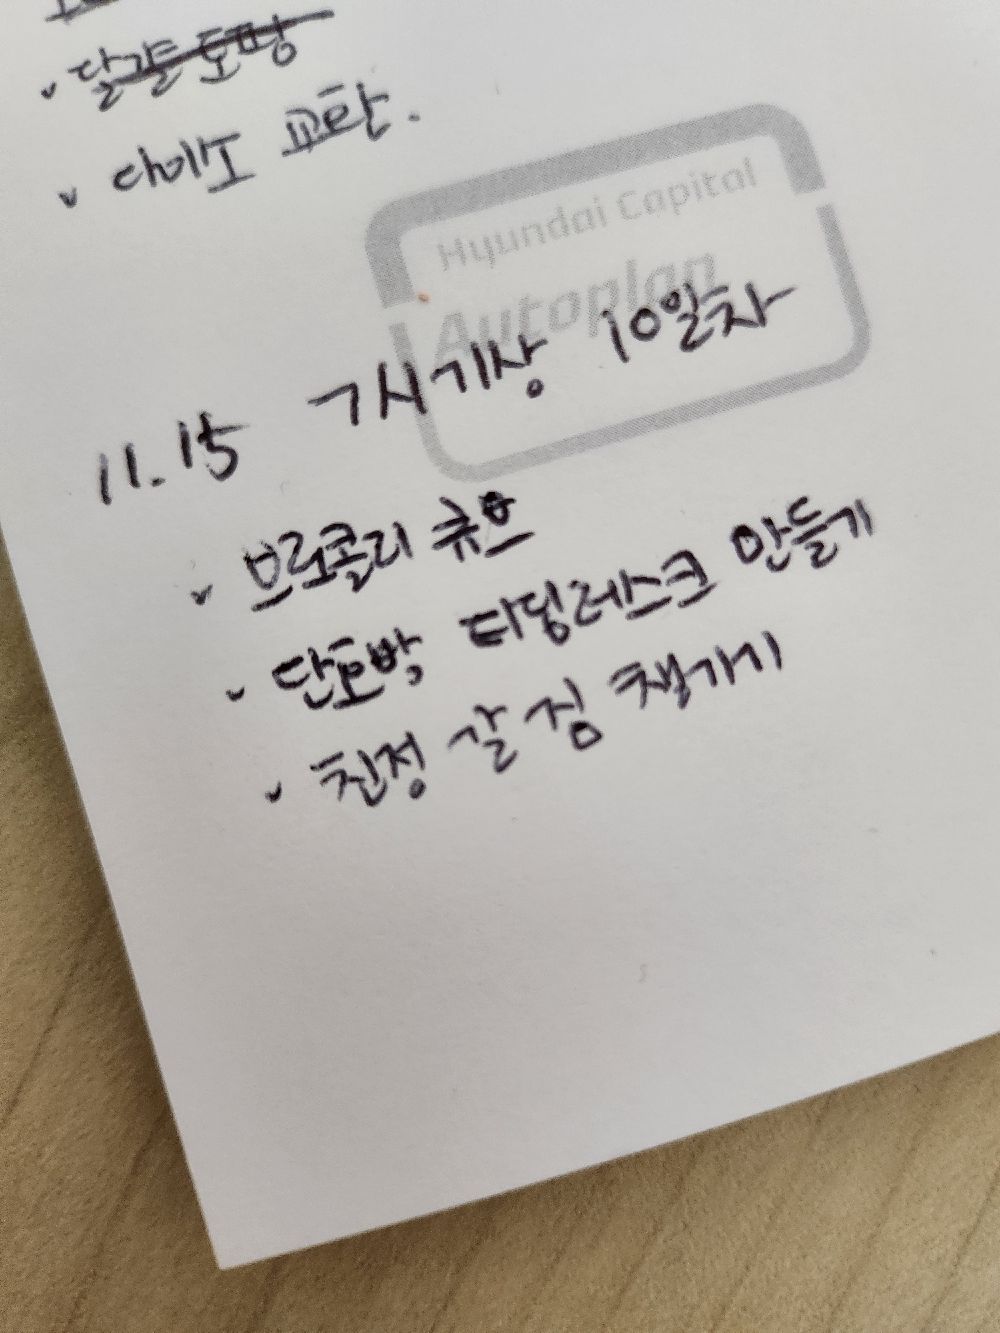 다이소 교환.
Hyundai Capital
Autoplan
11.15 7시기상 10일차
브로콜리 큐브
단호박 타딩레스크 만들기
친정 갈 짐 챙기기